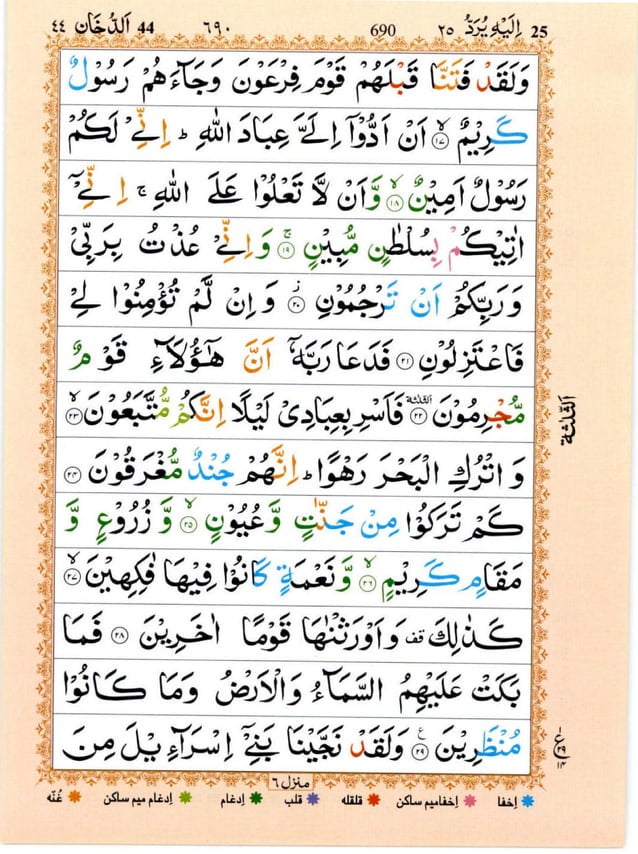 ٤٤ اَلدُّخَان 44 ٦٩٠ 690 ٢٥ اِلَيْهِ يُرَدُّ 25
وَلَقَدْ فَتَنَّا قَبْلَهُمْ قَوْمَ فِرْعَوْنَ وَجَآءَهُمْ رَسُوْلٌ
كَرِيْمٌ ۙ‏﴿۱۷﴾ اَنْ اَدُّوْۤا اِلَىَّ عِبَادَ اللّٰهِ ؕ اِنِّىْ لَكُمْ
رَسُوْلٌ اَمِيْنٌ ۙ‏﴿۱۸﴾ وَّاَنْ لَّا تَعْلُوْا عَلَى اللّٰهِ ۚ اِنِّىْۤ
اٰتِيْكُمْ بِسُلْطٰنٍ مُّبِيْنٍ ۚ‏﴿۱۹﴾ وَاِنِّىْ عُذْتُ بِرَبِّىْ
وَرَبِّكُمْ اَنْ تَرْجُمُوْنِ ۚ‏﴿۲۰﴾ وَاِنْ لَّمْ تُؤْمِنُوْا لِىْ
فَاعْتَزِلُوْنِ ‏﴿۲۱﴾ فَدَعَا رَبَّهٗۤ اَنَّ هٰٓؤُلَآءِ قَوْمٌ
مُّجْرِمُوْنَ ؔ‏﴿۲۲﴾ الثلثة فَاَسْرِ بِعِبَادِىْ لَيْلًا اِنَّكُمْ مُّتَّبَعُوْنَ ۙ‏﴿۲۳﴾
وَاتْرُكِ الْبَحْرَ رَهْوًا ؕ اِنَّهُمْ جُنْدٌ مُّغْرَقُوْنَ ‏﴿۲۴﴾
كَمْ تَرَكُوْا مِنْ جَنّٰتٍ وَّعُيُوْنٍ ۙ‏﴿۲۵﴾ وَّزُرُوْعٍ وَّ
مَقَامٍ كَرِيْمٍ ۙ‏﴿۲۶﴾ وَّنَعْمَةٍ كَانُوْا فِيْهَا فٰكِهِيْنَ ۙ‏﴿۲۷﴾
كَذٰلِكَ قف وَاَوْرَثْنٰهَا قَوْمًا اٰخَرِيْنَ ‏﴿۲۸﴾ فَمَا
بَكَتْ عَلَيْهِمُ السَّمَآءُ وَالْاَرْضُ وَمَا كَانُوْا
مُنْظَرِيْنَ ‏ع﴿۲۹﴾ وَلَقَدْ نَجَّيْنَا بَنِىْۤ اِسْرَآءِيْلَ مِنَ
اَلثّلٰثة
١ ع ٢٩ ١٤
منزل ٦
اِخفا اِخفامیم ساکن قلقله قلب اِدغام اِدغام میم ساکن غُنّه